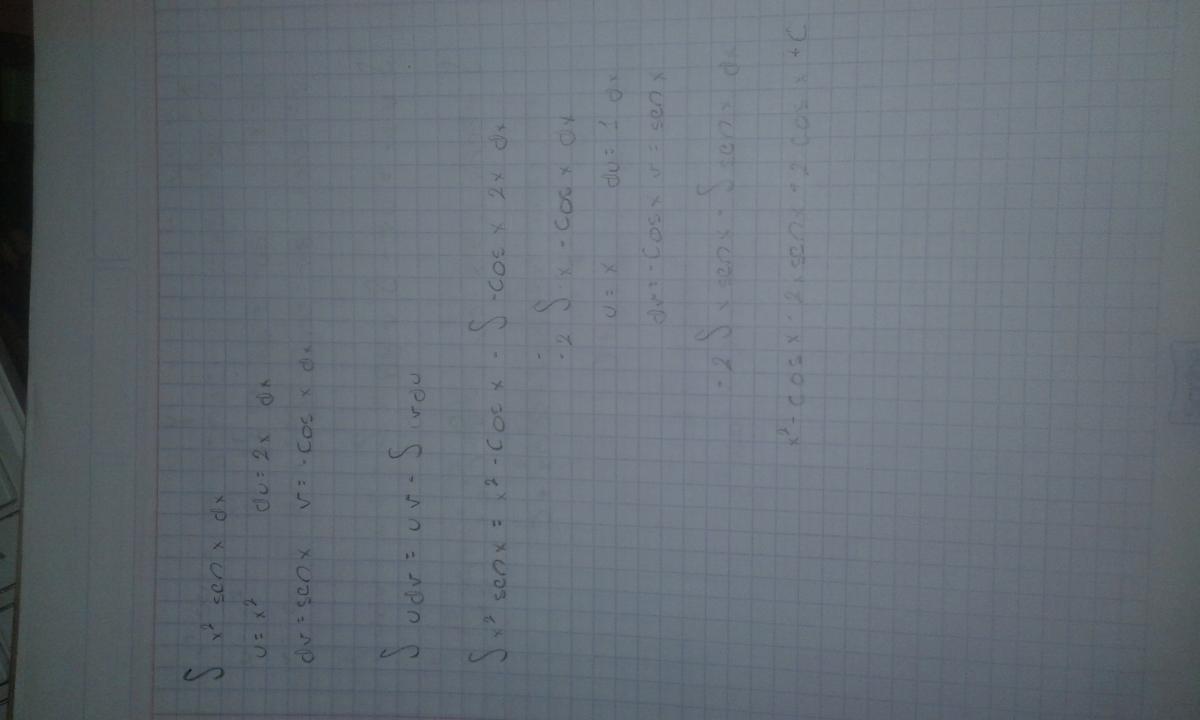 ∫ x² sen x dx
u = x² du = 2x dx
dv = sen x v = - cos x dx
∫ u dv = u v - ∫ v du
∫ x² sen x = x² - cos x - ∫ - cos x 2x dx
- 2 ∫ x - cos x dx
u = x du = 1 dx
dv = - cos x v = sen x
- 2 ∫ x sen x - ∫ sen x dx
x² - cos x - 2x sen x + 2 cos x + C